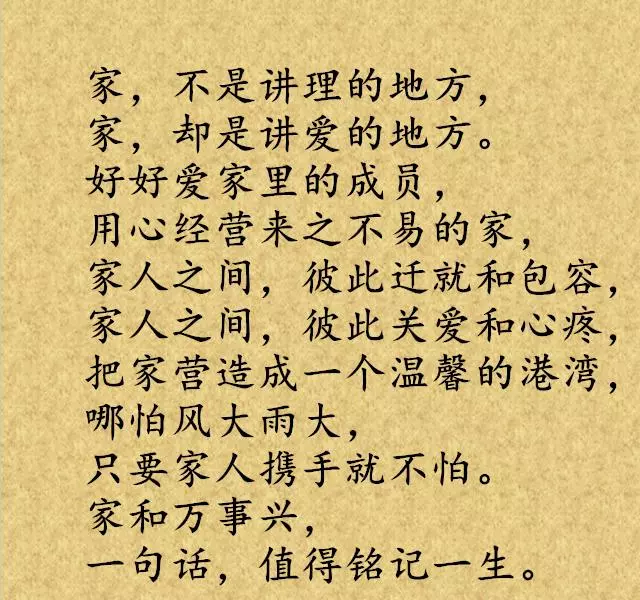 家，不是讲理的地方，
家，却是讲爱的地方。
好好爱家里的成员，
用心经营来之不易的家，
家人之间，彼此迁就和包容，
家人之间，彼此关爱和心疼，
把家营造成一个温馨的港湾，
哪怕风大雨大，
只要家人携手就不怕。
家和万事兴，
一句话，值得铭记一生。